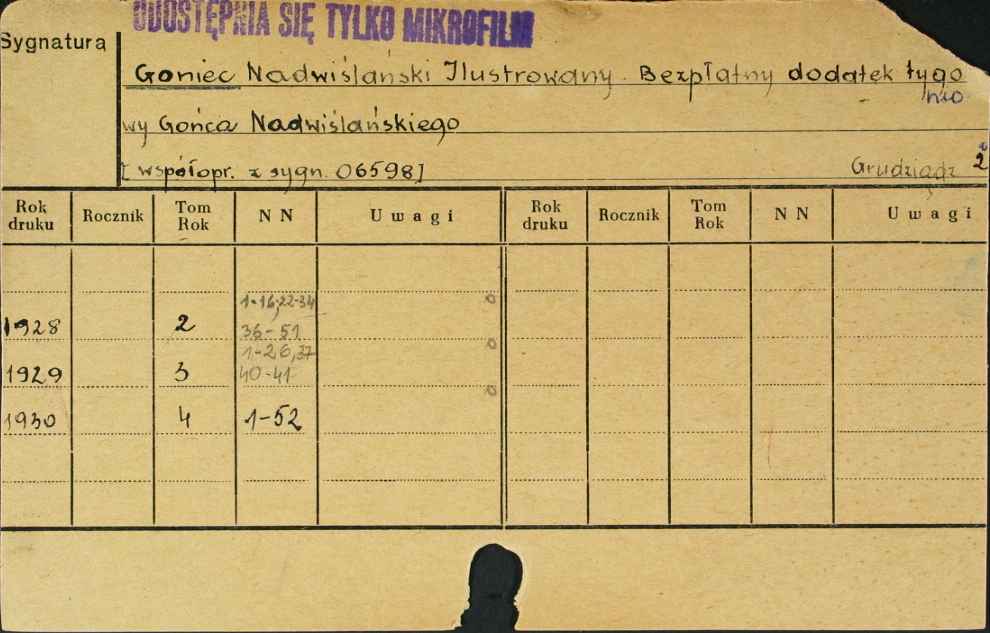 UDOSTĘPNIA SIĘ TYLKO MIKROFILM
Sygnatura
Goniec Nadwiślański Ilustrowany. Bezpłatny dodatek tygo
nio
wy Gońca Nadwiślańskiego
[współopr. z sygn. 06598]
Grudziądz 2
Rok druku Rocznik Tom Rok NN Uwagi Rok druku Rocznik Tom Rok NN Uwagi
1-16,22-34
1928 2 36-51
1-26,37
1929 3 40-41
1930 4 1-52